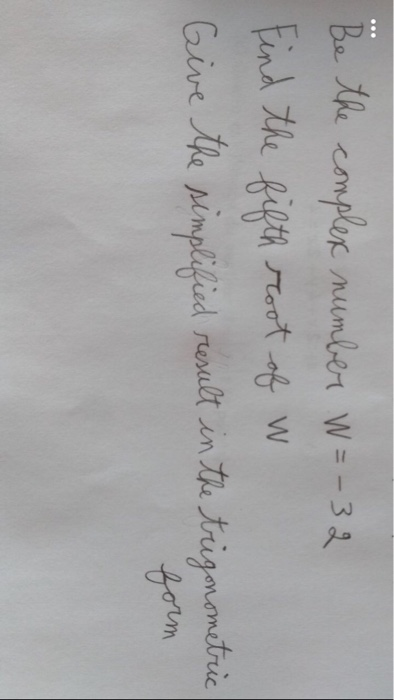 Be the complex number W = - 32
Find the fifth root of W
Give the simplified result in the trigonometric
form